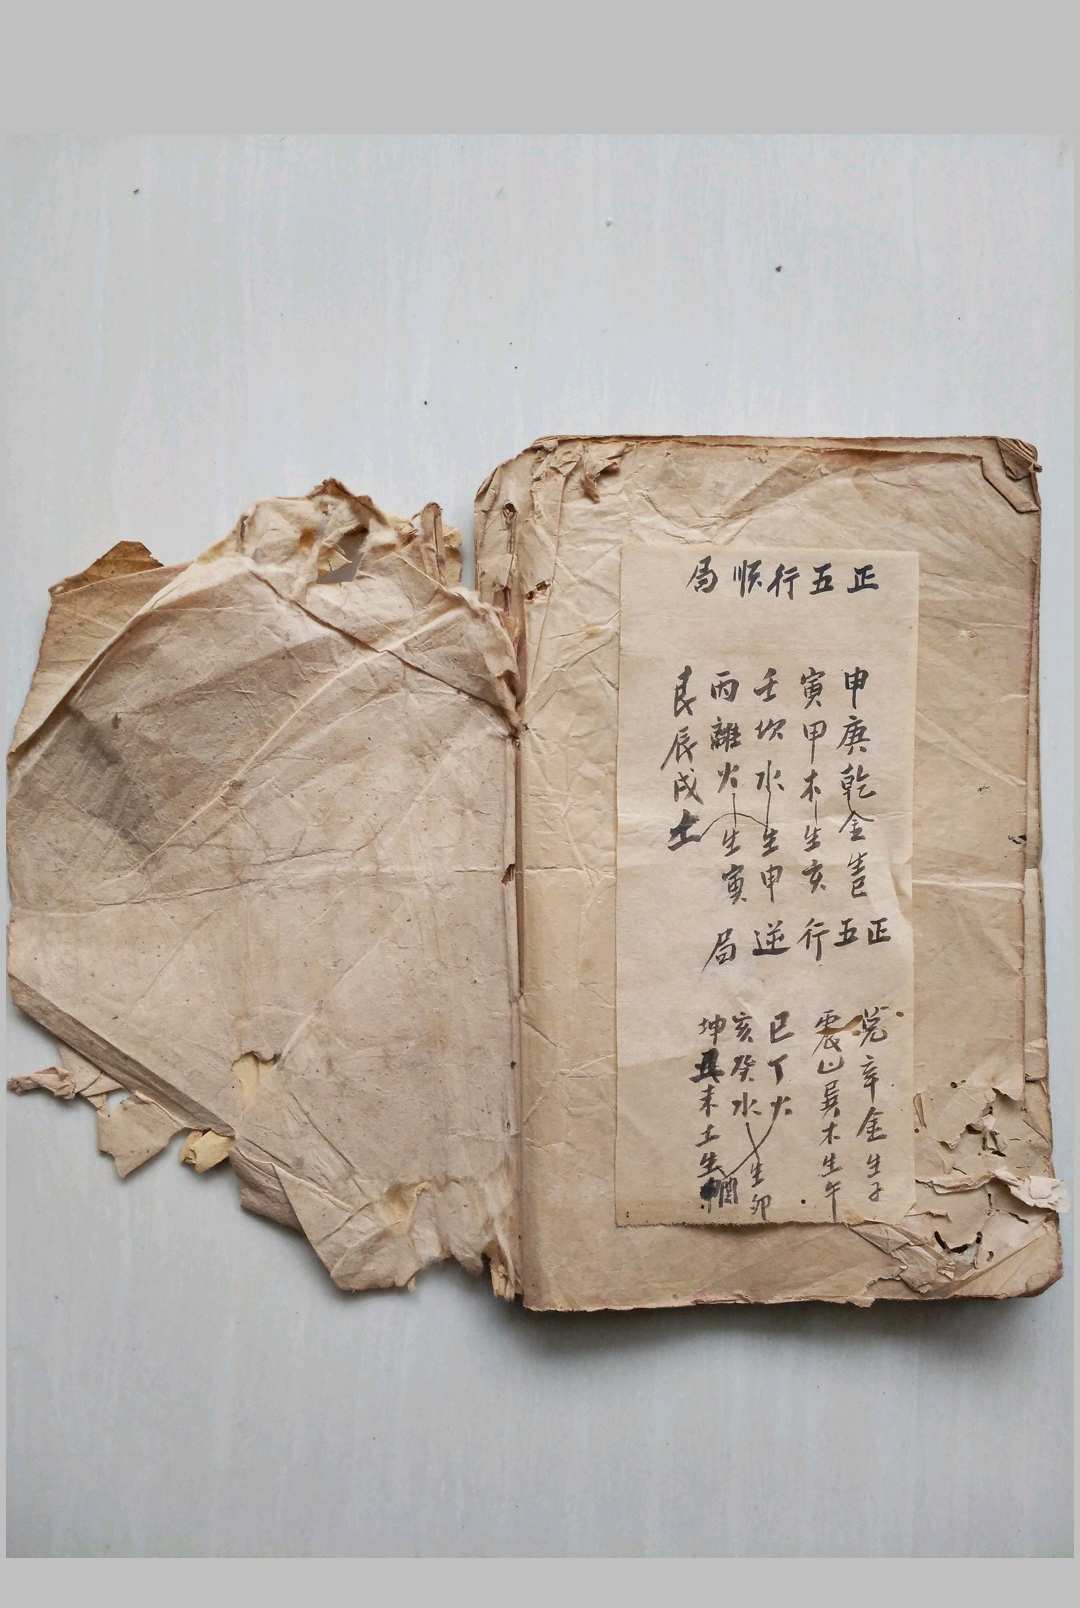 正五行順局
申庚乾金生巳
寅甲木生亥
壬坎水生申
丙離火生寅
艮辰戌土
正五行逆局
兌辛金生子
震山巽木生午
巳丁火生卯
亥癸水
坤丑未土生酉